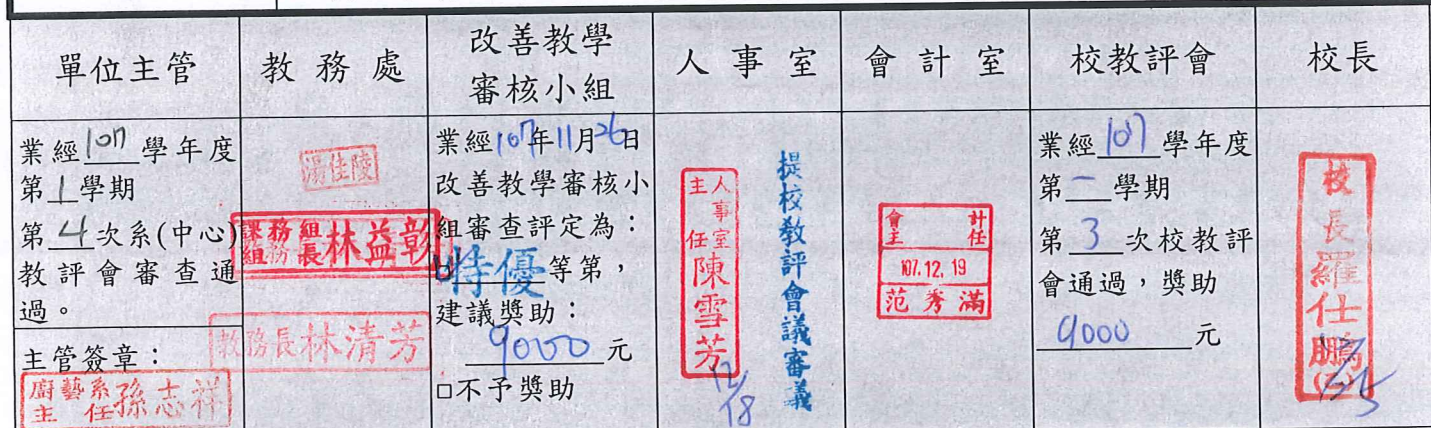 單位主管
教務處
改善教學
審核小組
人事室
會計室
校教評會
校長
業經107學年度
第1學期
第4次系(中心)
教評會審查通
過。
主管簽章：
廚藝系
主任孫志祥
湯佳陵
課務組
組長林益彰
教務長林清芳
業經107年11月26日
改善教學審核小
組審查評定為：
特優等第，
建議獎助：
9000元
□不予獎助
人事室
主任陳雪芳
12/18
提校教評會議審議
會計
主任
107.12.19
范秀滿
業經107學年度
第一學期
第3次校教評
會通過，獎助
9000元
校長羅仕鵬